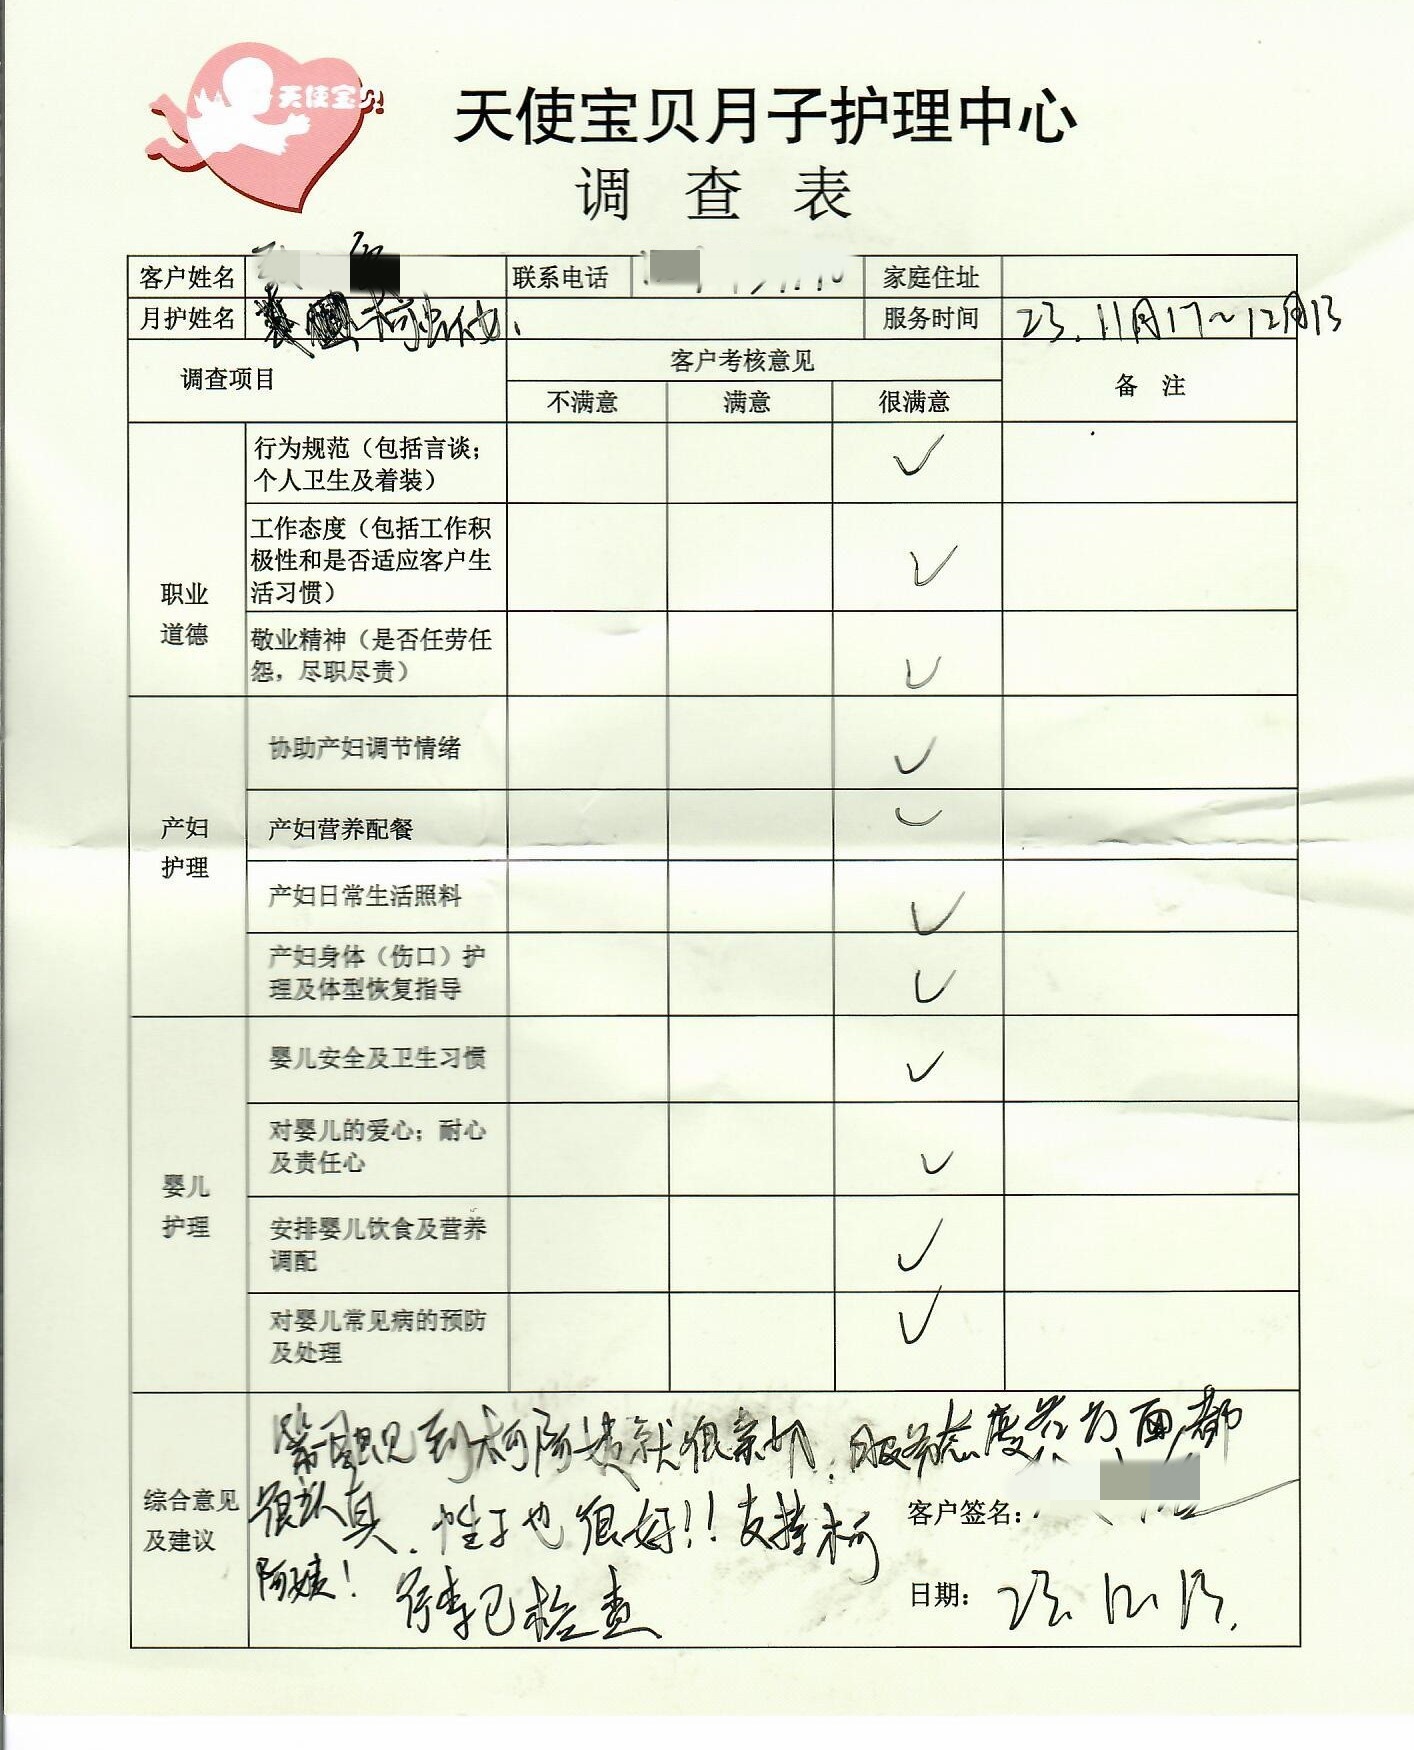 天使宝贝
天使宝贝月子护理中心
调 查 表
客户姓名 联系电话 家庭住址
月护姓名 柯 服务时间 23.11月17~12月13
调查项目 客户考核意见 备 注
不满意 满意 很满意
职业
道德
行为规范（包括言谈；
个人卫生及着装）
工作态度（包括工作积
极性和是否适应客户生
活习惯）
敬业精神（是否任劳任
怨，尽职尽责）
产妇
护理
协助产妇调节情绪
产妇营养配餐
产妇日常生活照料
产妇身体（伤口）护
理及体型恢复指导
婴儿
护理
婴儿安全及卫生习惯
对婴儿的爱心；耐心
及责任心
安排婴儿饮食及营养
调配
对婴儿常见病的预防
及处理
综合意见
及建议
第一眼见到柯阿姨就很亲切，服务态度各方面都
很认真，性子也很好！！支持柯
阿姨！
行李已检查
客户签名：
日期： 23.12.13.